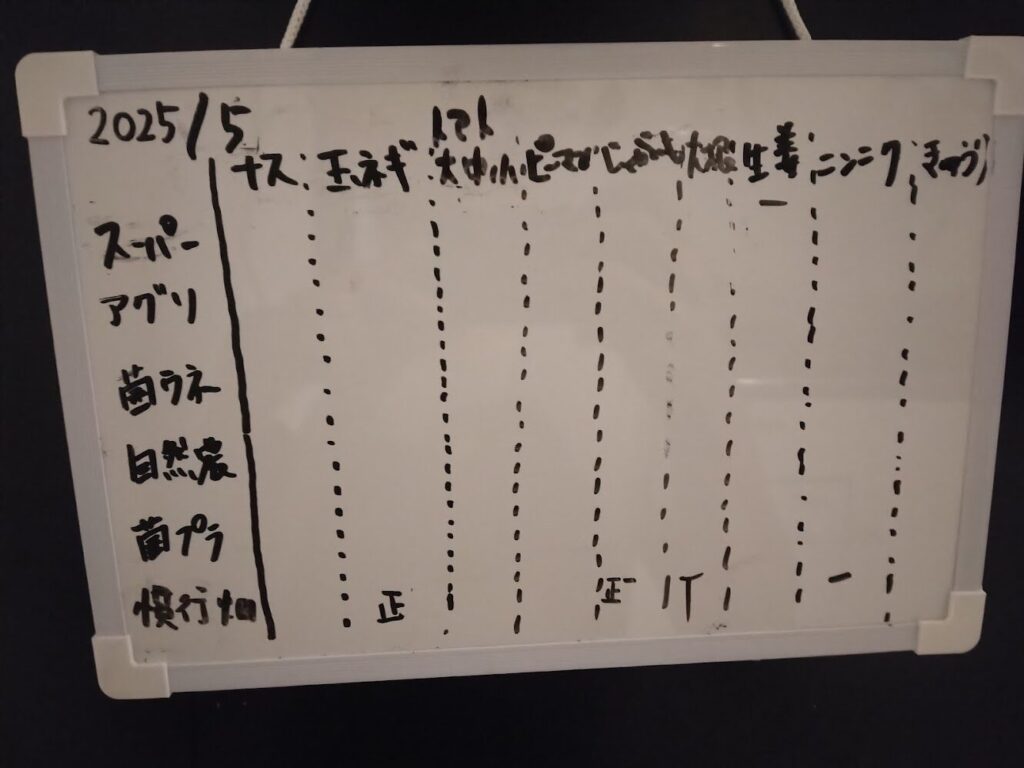 2025/5
トマト
ナス 玉ネギ 大中小 ピーマン じゃがいも 大根 生姜 ニンニク きゅうり
スーパー 一
アグリ
菌ウネ
自然農
菌プラ
慣行畑 正 正一 丅 一